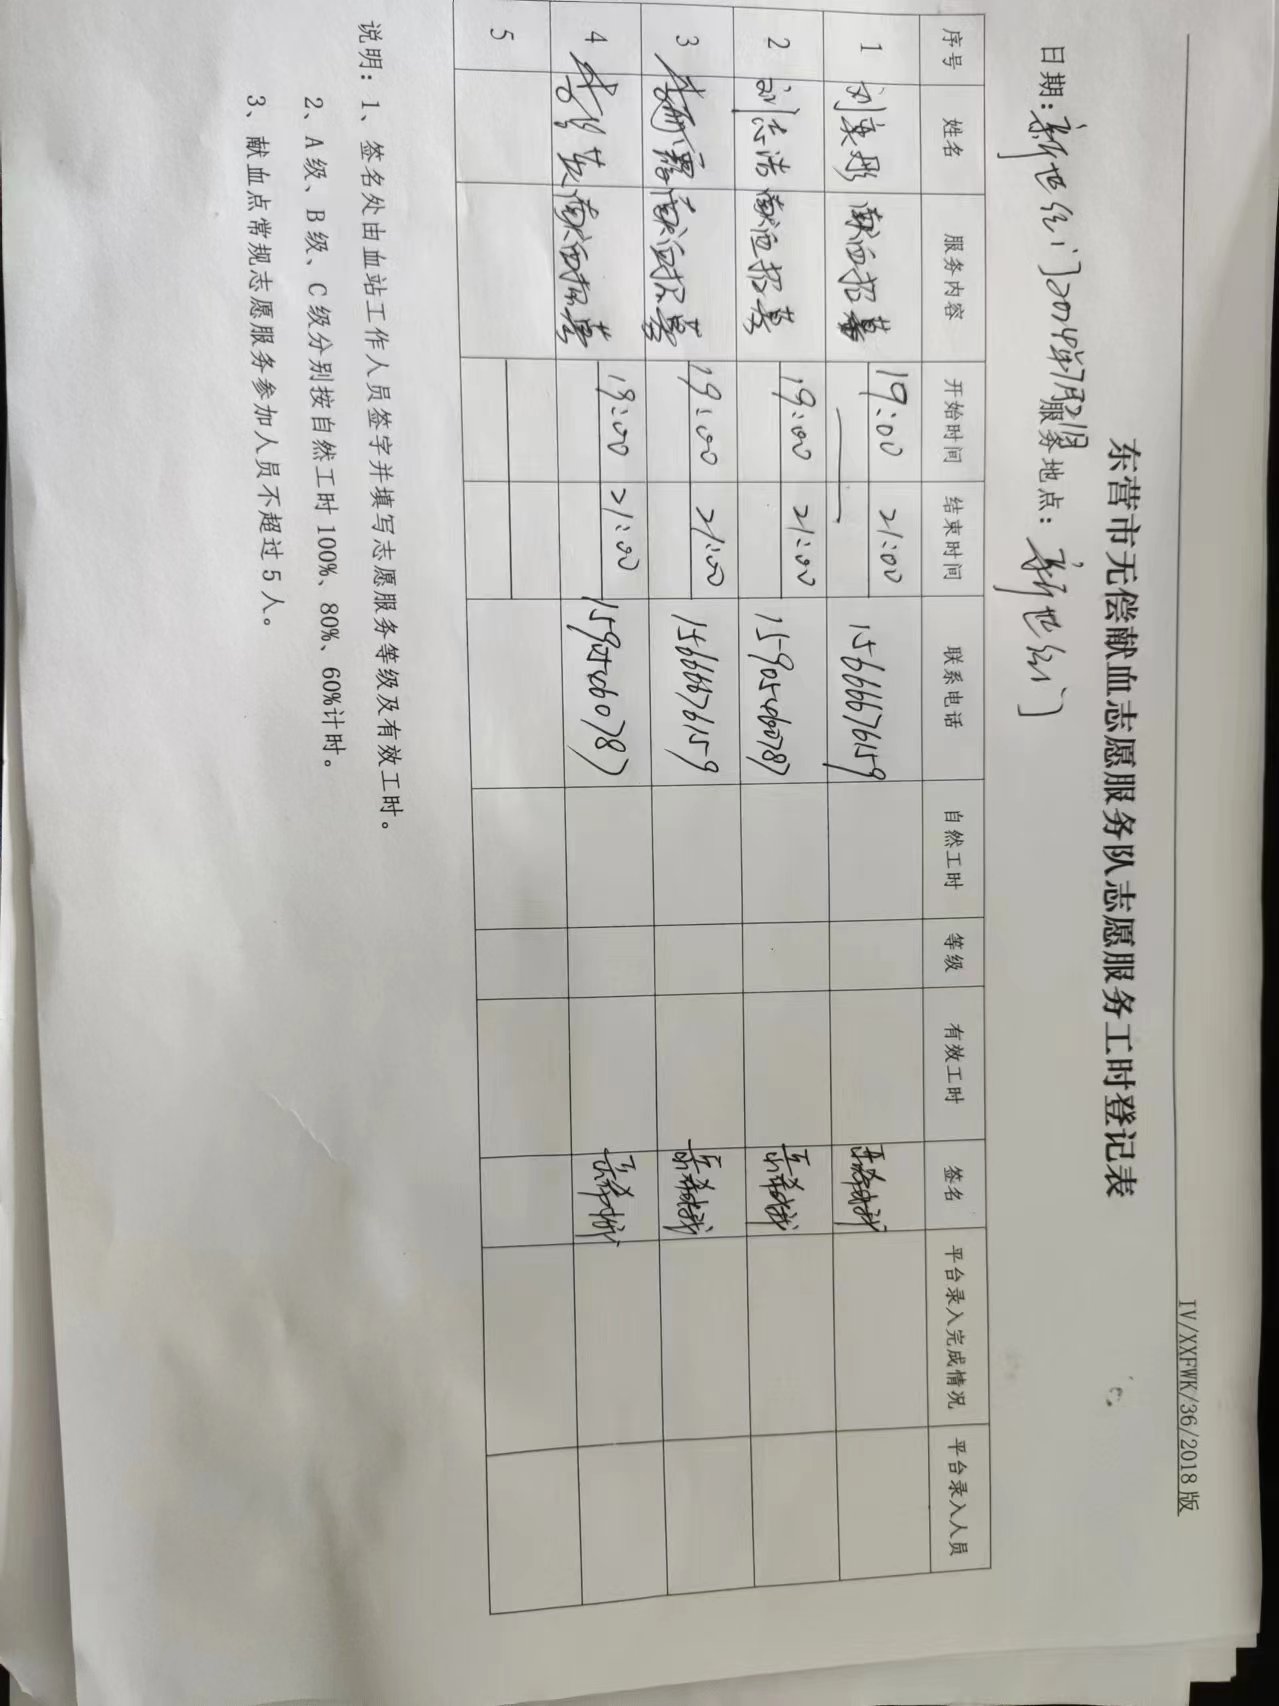 IV/XXFWK/36/2018版
东营市无偿献血志愿服务队志愿服务工时登记表
日期：新世纪门2024年7月21日 服务地点：新世纪门
序号 姓名 服务内容 开始时间 结束时间 联系电话 自然工时 等级 有效工时 签名 平台录入完成情况 平台录入人员
1 刘奕彤 献血招募 19:00 21:00 15666676159
2 刘志浩 献血招募 19:00 21:00 15905460787
3 献血招募 19:00 21:00 15666676159
4 献血招募 19:00 21:00 15905460787
5
说明：1、签名处由血站工作人员签字并填写志愿服务等级及有效工时。
2、A级、B级、C级分别按自然工时100%、80%、60%计时。
3、献血点常规志愿服务参加人员不超过5人。